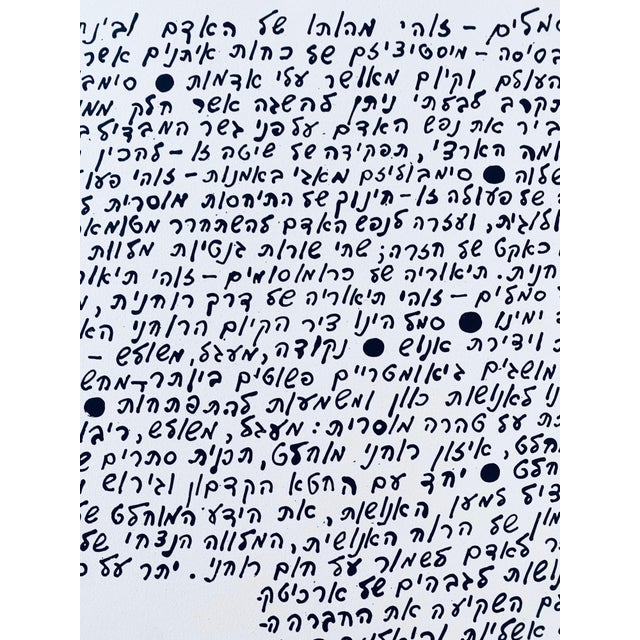 סמלים – זוהי מהותו של האדם ובינ
בסיסה – מיסטיציזם של כוחות איתנים אשר
העולם וקיום מאושר עלי אדמות ● סימב
תקרב לבלעתי ניתן להשגה אשר חלק ממ
ביר את נפש האדם על פני גשר המבדיל ב
ומה הארצי, תפקידה של שיטה זו – להכין
שלוה ● סימבוליזם מאגי באמנות – זוהי פעו
של פעולה זו – חינוך של התיחסות מוסרית ל
ולוגית, ועזרה לנפש האדם להשתחרר מטומא
כאקט של חזרה; שתי שורות גנטיות מלוות
חנית. תיאוריה של כרומוסומים – זוהי תיאור
סמלים – זוהי תיאוריה של דרך רוחנית,
ימינו ● סמל הינו ציר הקיום הרוחני הא
וידירת אנוש ● נקודה, מעגל, משולש –
מושגים גיאומטריים פשוטים ביותר – מחש
נו לאנושות כוון ומשמעות להתפתחות ●
ת על טהרה מוסרית: מעגל, משולש, ריבו
חלט, איזון רוחני מוחלט, תכנית סתרים ש
חלט ● יחד עם החטא הקדמון וגירוש
דיל למען האנושות, את הידע המוחלט ש
מון של הרוח האנושית, המלווה הנצחי של
ר לאדם לשמור על חום רוחני. יתר על כ
נושות לגבהים של ארכיטק
ם השקיעה את החברה ה-
אשליות